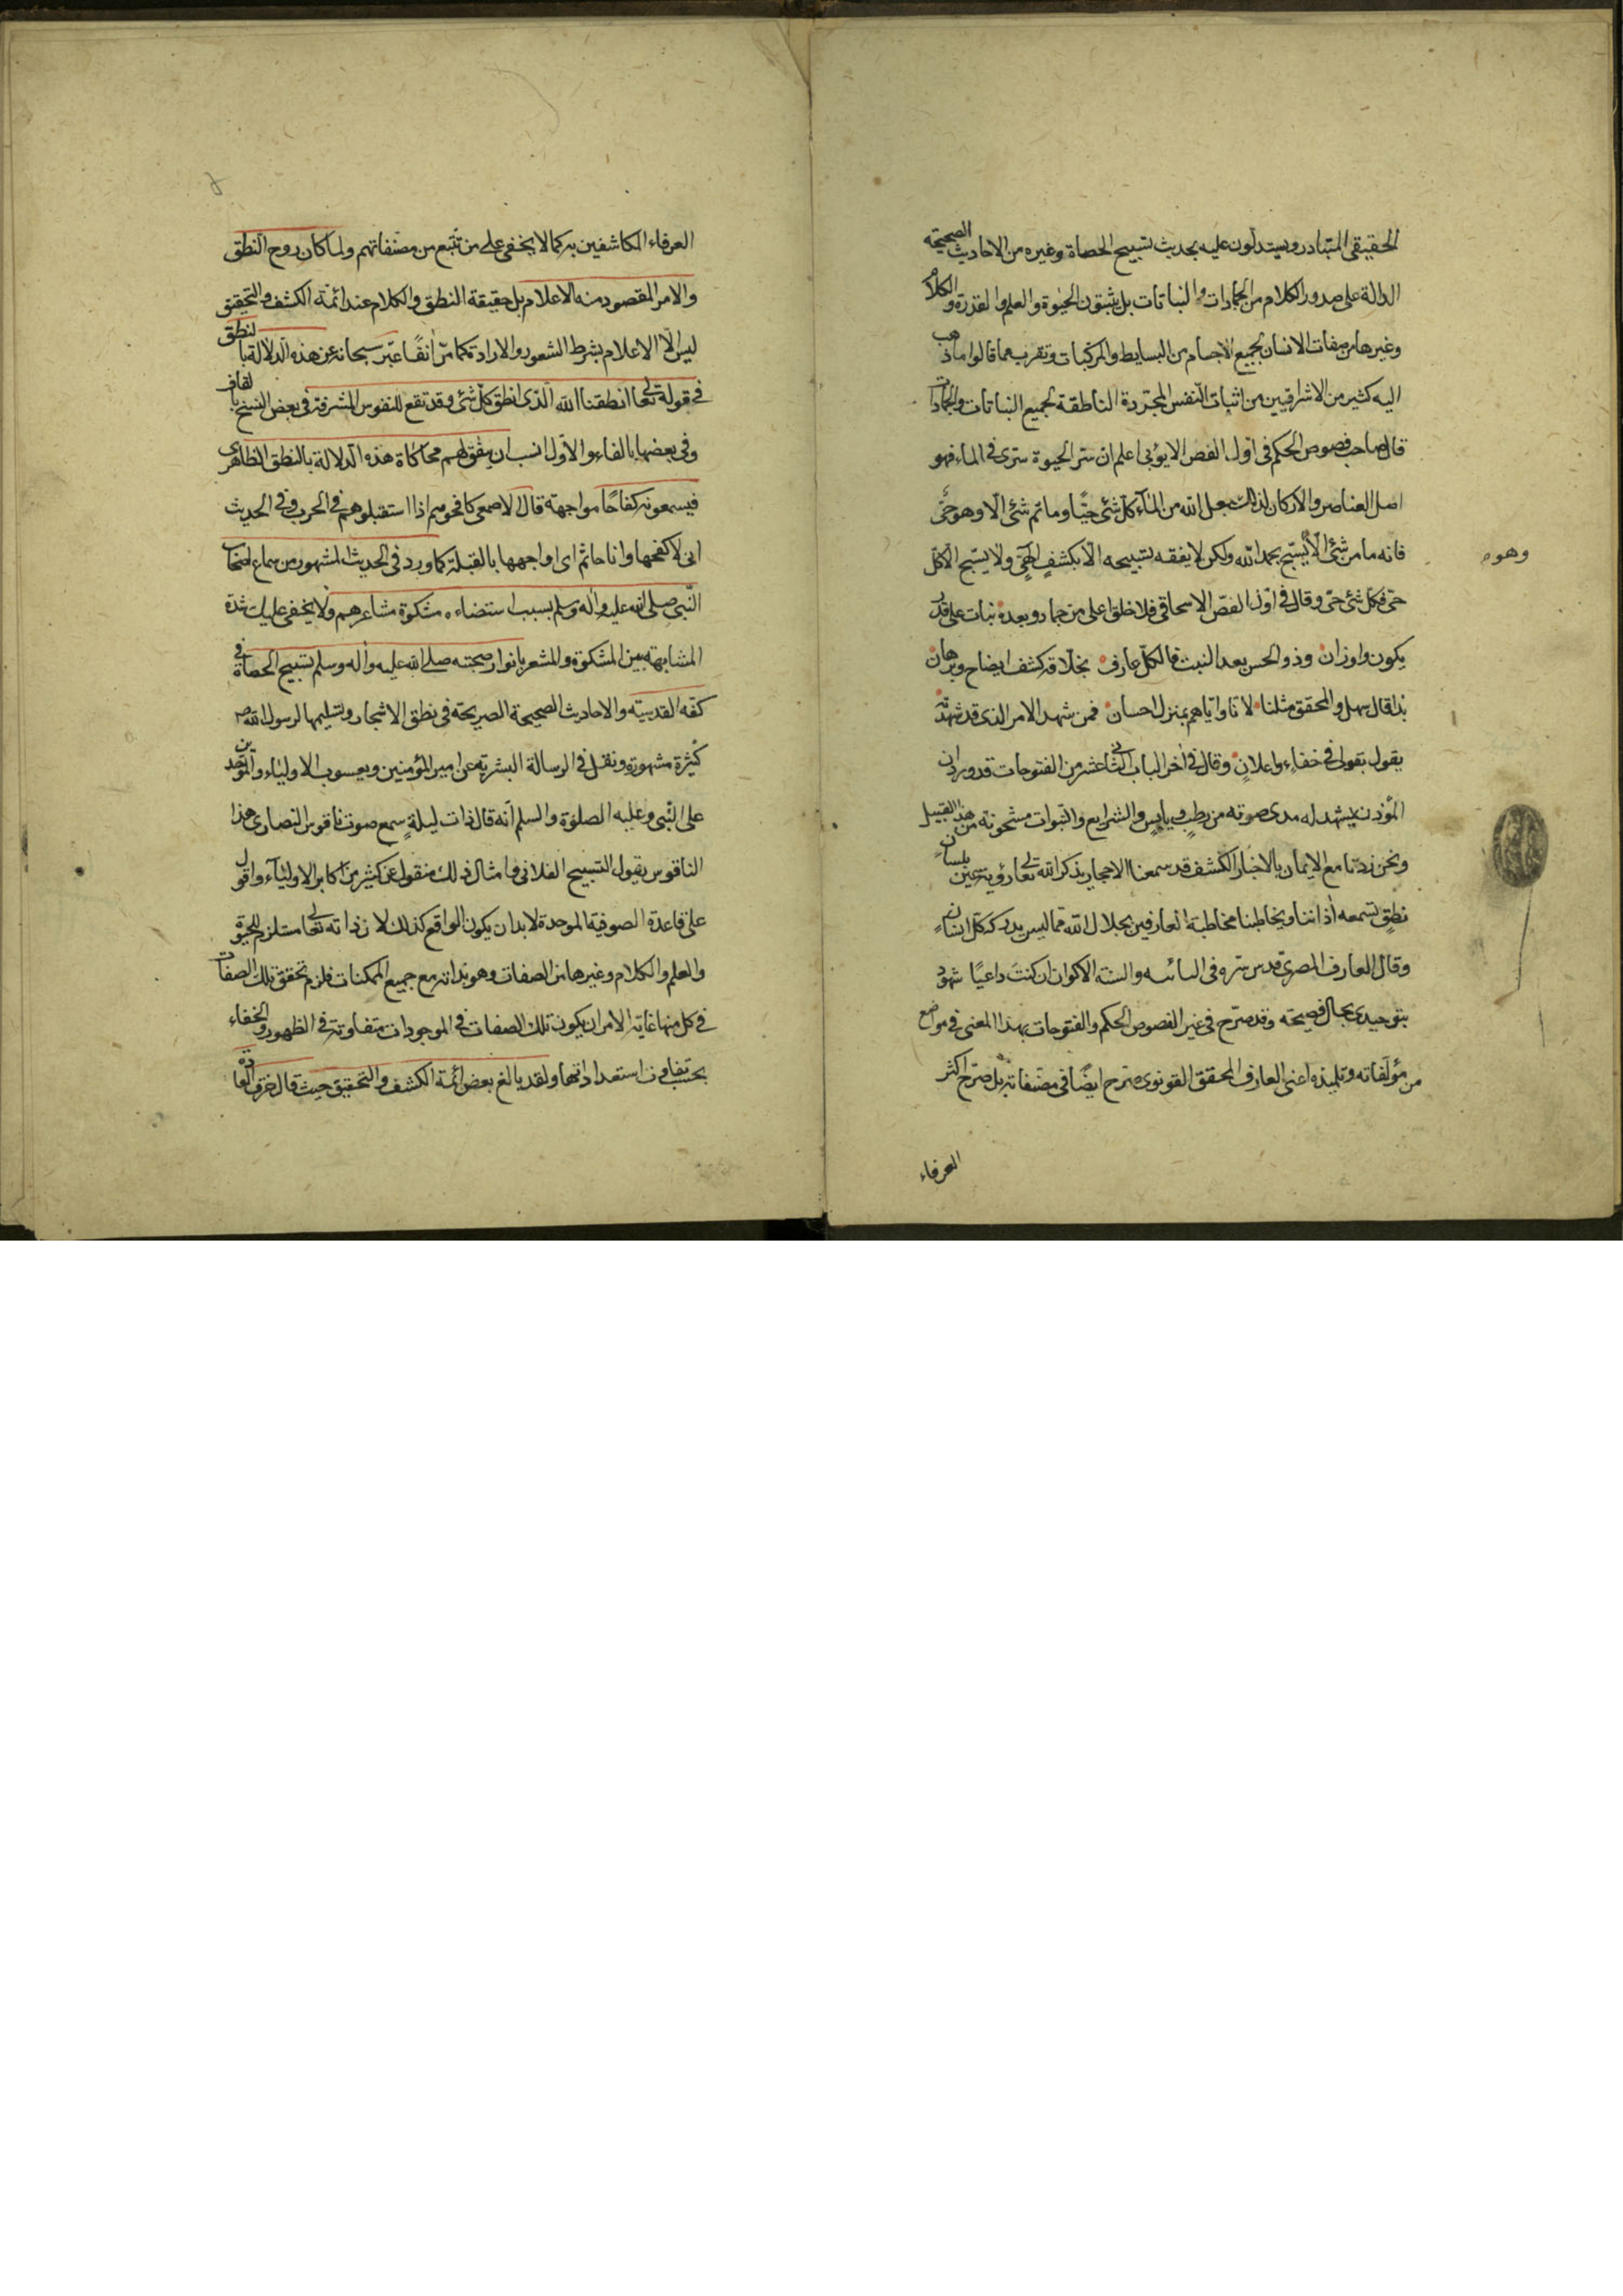 الحقيقى المتبادر ويستدلون عليه بحديث تسبيح الحصاة وغيره من الاحاديث الصحيحة
الدالة على صدور الكلام من الجمادات والنباتات بل يثبتون الحيوة والعلم والقدرة والكلام
وغيرها من صفات الانسان لجميع الاجسام من البسايط والمركبات وتقرب مما قالوا ما ذهب
اليه كثير من الاشراقيين من اثبات النفس المجردة الناطقة لجميع النباتات والجمادات
قال صاحب فصوص الحكم فى اول الفص الايوبى اعلم ان سر الحيوة سرى فى الماء فهو
اصل العناصر والاركان لذلك جعل الله من الماء كل شئ حيًّا وما ثم شئ الا وهو حىّ
فانه ما من شئ الّا يُسبّح بحمد الله ولكن لا يفقه تسبيحه الّا بكشفٍ الٰهىّ ولا يسبّح الّا كل
وهو
حىّ فكل شئ حىّ وقال فى اول الفصّ الاسحاقى فلا خلق اعلى من جماد وبعده نبات على قدر
يكون واوزان وذو الحس بعد النبت فالكلّ عارف بخلاقه كشف ايضاح وبرهان
بذا قال سهل والمحقق مثلنا لانا واياهم بمنزل احسان فمن شهد الامر الذى قد شهدته
يقول بقولى فى خفاءٍ واعلانٍ وقال فى اٰخر الباب الثانى عشر من الفتوحات قد ورد ان
المؤذن يشهد له مدى صوته من رطبٍ ويابسٍ والشرايع والنبوات مشحونة من هذا القبيل
ونحن زدنا مع الايمان بالاخبار الكشف قد سمعنا الاحجار يذكر الله تعالى رؤية عين بلسان
نطقٍ تسمعه اٰذاننا ويخاطبنا مخاطبة العارفين بجلال الله مما ليس يدركه كل انسانٍ
وقال العارف المصرى قدس سره فى التائيه والسنة الاكوان ان كنتَ داعيًا شهود
بتوحيدى بحال فصيحة وقد صرّح فى غير الفصوص الحكم والفتوحات بهذا المعنى فى مواضع
من مؤلفاته وتلميذه اعنى العارف المحقق القونوى صرح ايضًا فى مصنفاته بل صرّح اكثر
العرفاء
العرفاء المكاشفين به كما لا يخفى على من تتبع من مصنفاتهم ولما كان روح النطق
والامر المقصود منه الاعلام بل حقيقة النطق والكلام عند ائمة الكشف والتحقيق
ليس الّا الاعلام بشرط الشعور والارادة كما مرّ اٰنفًا عبّر سبحانه عن هذه الدلالة بالنطق
فى قوله تعالى انطقنا الله الذى انطق كل شئ وقد تقع للنفوس المشرفة فى بعض النسخ بالقاف
وفى بعضها بالفاء والاول انسب ان يتفق لهم محاكاة هذه الدلالة بالنطق الظاهرى
فيسمعونه كفاحًا مواجهة قال الاصمعى كافحوهم اذا استقبلوهم فى الحرب وفى الحديث
انى لاكفحها وانا صائم اى اواجهها بالقبلة كما ورد فى الحديث المشهور من سماع اصحاب
النّبى صلى الله عليه واٰله وسلم بسبب استضاءه مشكوة مشاعرهم ولا يخفى عليك شدة
المشابهة بين المشكوة والمشعر بانوار صحبته صلى الله عليه واٰله وسلم تسبيح الحصاة فى
كفّه القدسيّه والاحاديث الصحيحة الصريحة فى نطق الاشجار وتسليمها لرسول الله ص
كثيرة مشهورة ونقل فى الرسالة القشرية عن امير المؤمنين ويعسوب الاولياء والموحدين
على النّبى وعليه الصلوة والسلم انّه قال ذات ليلةٍ سمع صوت ناقوس النصارى هذا
الناقوس يقول التسبيح الفلانى وامثال ذلك منقول عن كثير من اكابر الاولياء واقول
على قاعدة الصوفية الموحدة لابد ان يكون الواقع كذلك لان ذاته تعالى مستلزم للحيوة
والعلم والكلام وغيرها من الصفات وهو بذاته مع جميع الممكنات فلزم تحقق تلك الصفات
فى كل منها غاية الامر ان يكون تلك الصفات فى الموجودات متفاوتة فى الظهور والخفاء
بحسب تفاوت استعداداتها ولقد بالغ بعض ائمة الكشف والتحقيق حيث قال خرق العادة